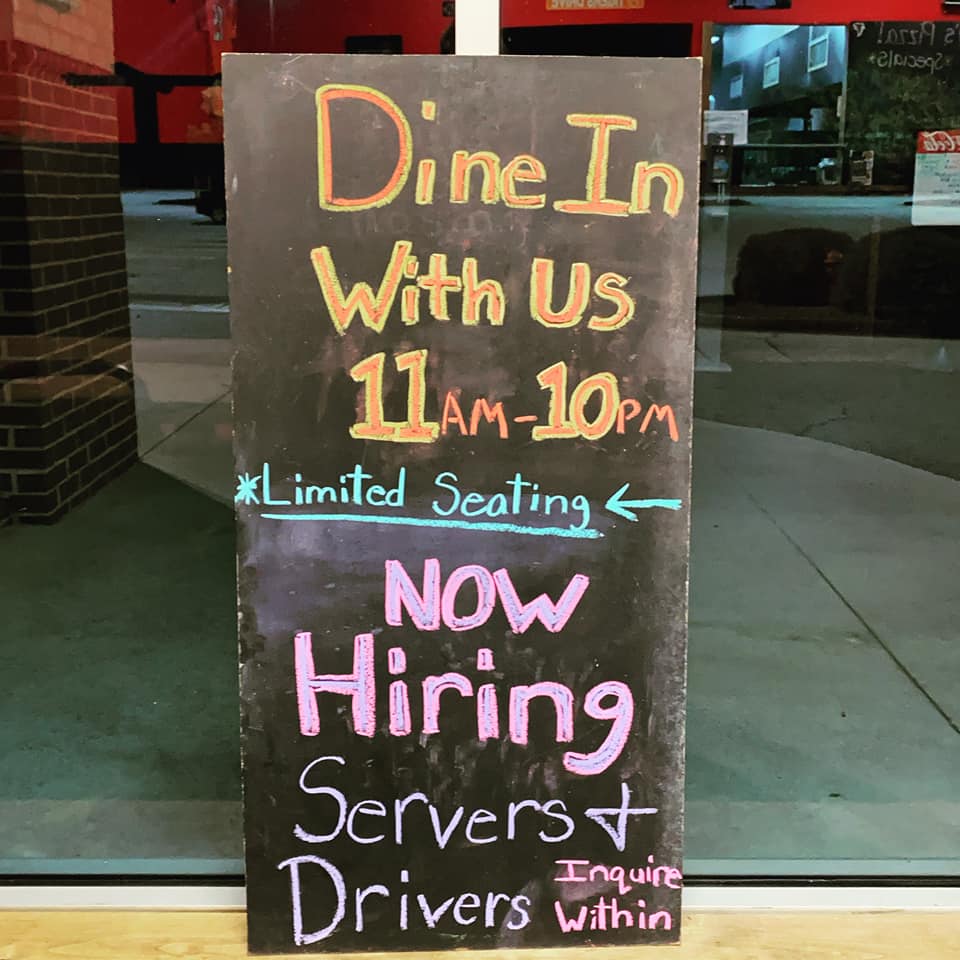 Dine In
With Us
11AM-10PM
*Limited Seating ←
Now
Hiring
Servers +
Drivers
Inquire
Within
's Pizza!
Specials*